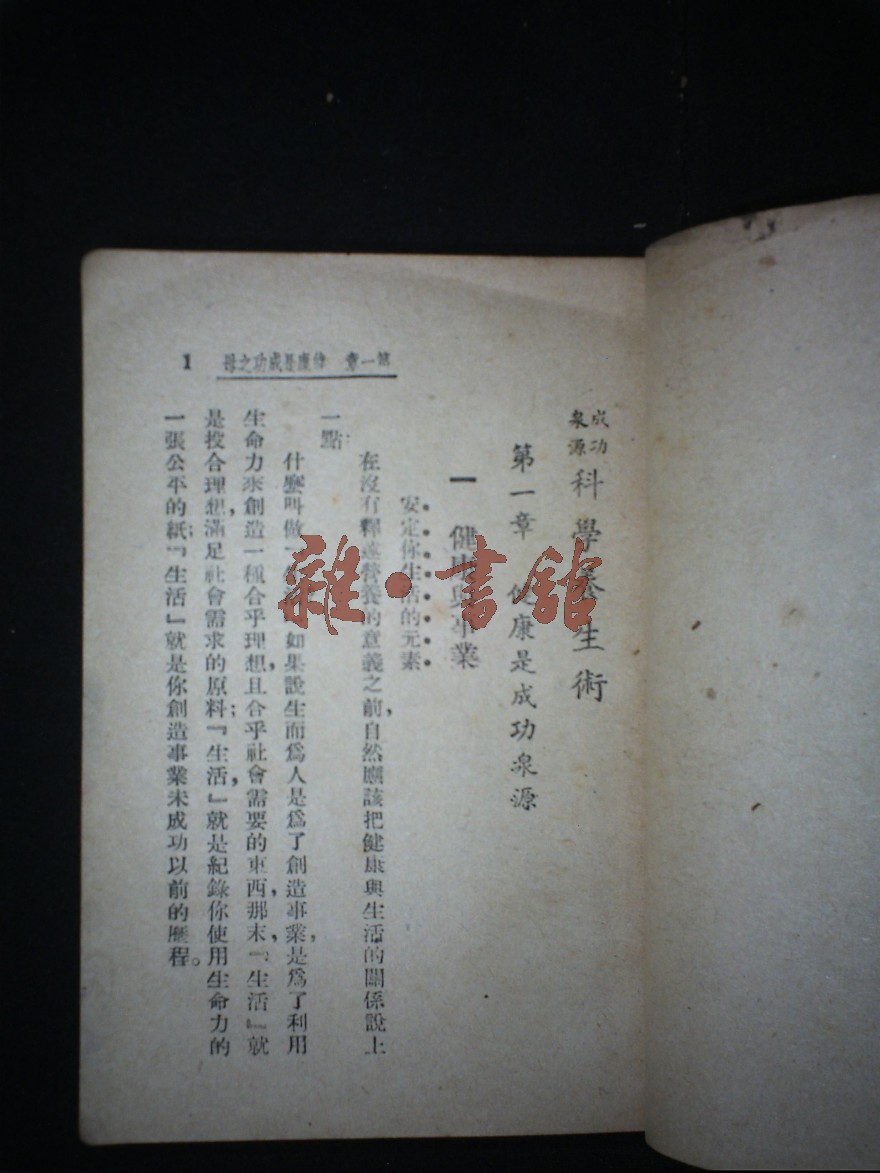 成功泉源 科學養生術
第一章 健康是成功泉源
一 健康與事業
安定你生活的元素
在沒有釋述營養的意義之前,自然應該把健康與生活的關係說上
一點:
什麼叫做『生活』如果說生而為人是為了創造事業,是為了利用
生命力來創造一種合乎理想,且合乎社會需要的東西,那末,『生活』就
是投合理想,滿足社會需求的原料;『生活,』就是紀錄你使用生命力的
一張公平的紙;『生活』就是你創造事業未成功以前的歷程。
第一章 健康是成功之母
1
雜·書館